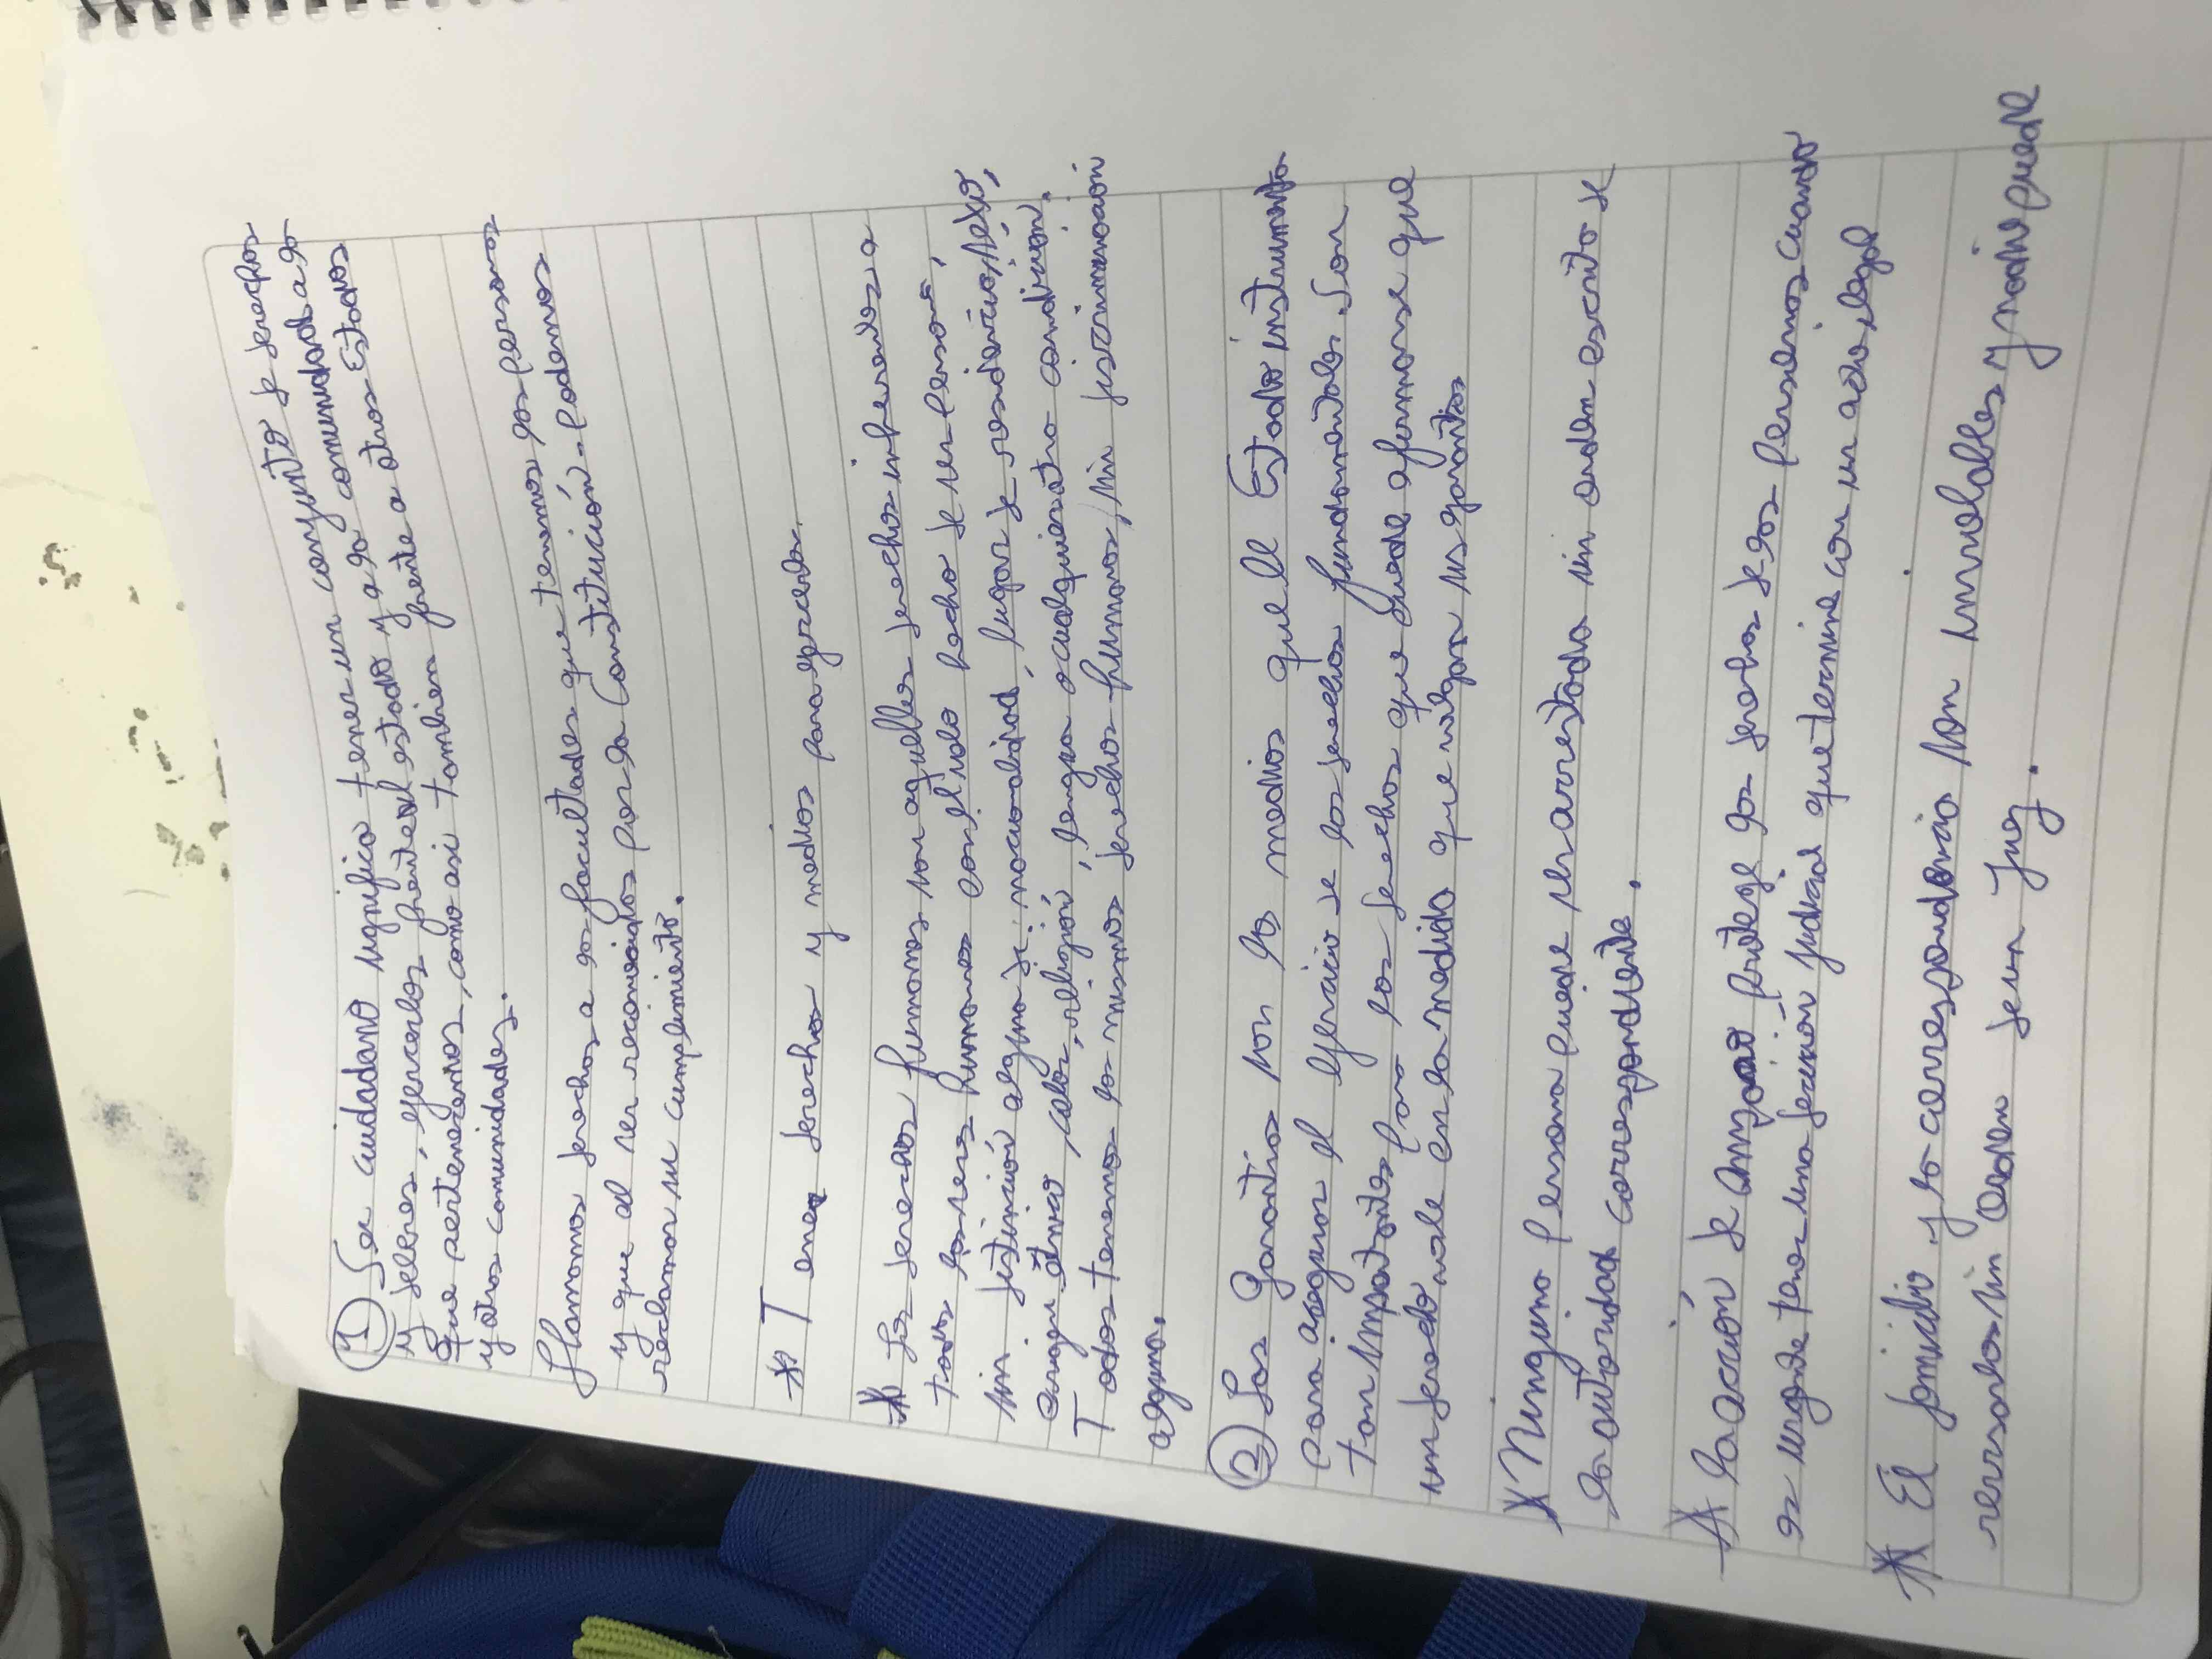 1) Ser cuidadano significa tener un conjunto de derechos
y deberes, ejercerlos frente al estado y a la comunidad a la
que pertenecemos, como asi tambien frente a otros Estados
y otras comunidades.
Llamamos derechos a las facultades que tenemos las personas
y que al ser reconocidas por la Constitución. Podemos
reclamar su cumplimiento.
* Tener derechos y medios para ejercerlos.
* Los derechos humanos son aquellos derechos inherentes a
todos los seres humanos con el solo hecho de ser persona,
sin distinción alguna de: nacionalidad, lugar de residencia, sexo,
origen étnico, color, religión, lengua o cualquier otra condición.
Todos tenemos los mismos derechos humanos, sin discriminación
alguna.
2) Las Garantías son los medios que el Estado instrumenta
para asegurar el ejercicio de los derechos fundamentales. Son
tan importantes para los derechos que puede afirmarse que
un derecho vale en la medida que valgan sus garantías
* Ninguna persona puede ser arrestada sin orden escrita de
la autoridad correspondiente.
* La acción de amparo protege los derechos de las personas cuando
es urgente tener una decisión judicial que termine con un acto ilegal
* El domicilio y la correspondencia son inviolables y nadie puede
revisarlos sin orden de un juez.